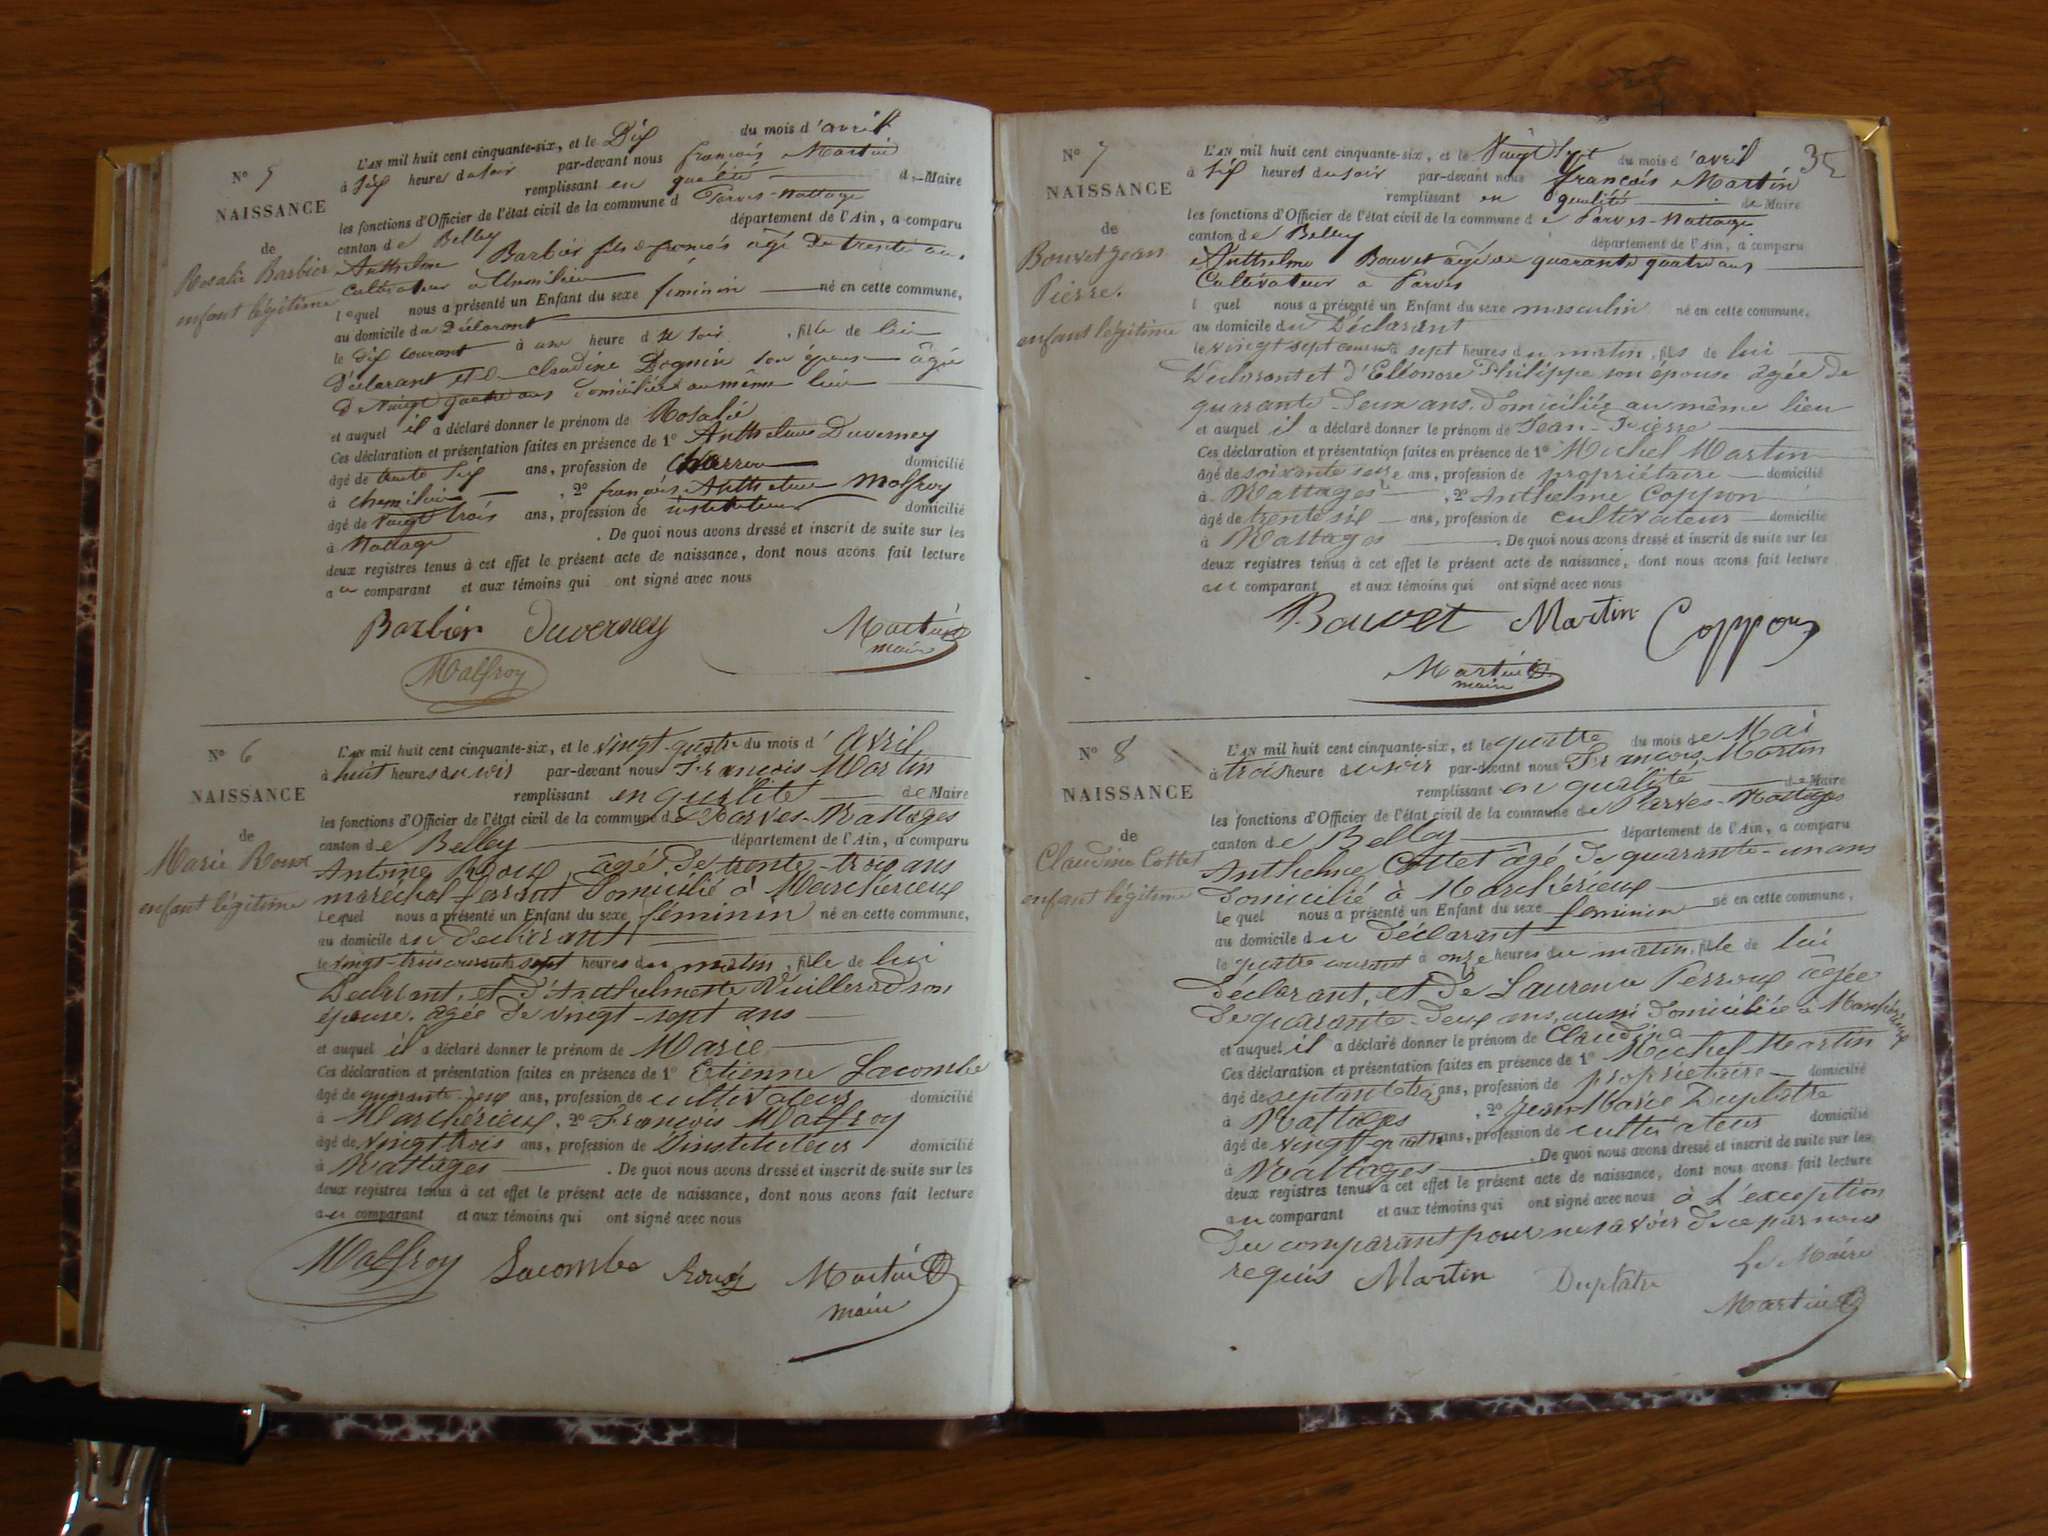 N° 5
NAISSANCE
de
Rosalie Barbier
enfant légitime
L'AN mil huit cent cinquante-six, et le Dix du mois d'avril
à six heures du soir par-devant nous françois Martin
remplissant en qualité de Maire
les fonctions d'Officier de l'état civil de la commune d Parves-Nattage
canton de Belley département de l'Ain, a comparu
Anthelme Barbier fils de françois âgé de trente ans
Cultivateur à Chemilieu
lequel nous a présenté un Enfant du sexe féminin né en cette commune,
au domicile du Déclarant
le dix courant à une heure du soir, fille de lui
Déclarant et de claudine son épouse âgée
de Vingt quatre ans domiciliée au même lieu
et auquel il a déclaré donner le prénom de Rosalie
Ces déclaration et présentation faites en présence de 1° Anthelme Duverney
âgé de trente six ans, profession de charron domicilié
à chemilieu, 2° françois Anthelme Malfroy
âgé de vingt trois ans, profession de instituteur domicilié
à Nattage. De quoi nous avons dressé et inscrit de suite sur les
deux registres tenus à cet effet le présent acte de naissance, dont nous avons fait lecture
au comparant et aux témoins qui ont signé avec nous
Barbier Duverney Martin
maire
Malfroy
N° 6
NAISSANCE
de
Marie Roux
enfant légitime
L'AN mil huit cent cinquante-six, et le vingt-quatre du mois d'Avril
à huit heures du soir par-devant nous François Martin
remplissant en qualité de Maire
les fonctions d'Officier de l'état civil de la commune de Parves-Nattages
canton de Belley département de l'Ain, a comparu
Antoine Roux, âgé de trente-trois ans
maréchal-ferrant domicilié à Marchérieux
Lequel nous a présenté un Enfant du sexe féminin né en cette commune,
au domicile du déclarant
le vingt-trois courant à sept heures du matin, fille de lui
Déclarant, et d'Anthelmette Vuillerod son
épouse, âgée de vingt-sept ans
et auquel il a déclaré donner le prénom de Marie
Ces déclaration et présentation faites en présence de 1° Etienne Lacombe
âgé de quarante-deux ans, profession de cultivateur domicilié
à Marchérieux, 2° François Malfroy
âgé de vingt trois ans, profession de D'instituteur domicilié
à Nattages. De quoi nous avons dressé et inscrit de suite sur les
deux registres tenus à cet effet le présent acte de naissance, dont nous avons fait lecture
au comparant et aux témoins qui ont signé avec nous
Malfroy Lacombe Roux Martin
maire
35
N° 7
NAISSANCE
de
Bouvet Jean
Pierre.
enfant légitime
L'AN mil huit cent cinquante-six, et le Vingt Sept du mois d'avril
à six heures du soir par-devant nous françois Martin
remplissant en qualité de Maire
les fonctions d'Officier de l'état civil de la commune de Parves-Nattage
canton de Belley département de l'Ain, a comparu
Anthelme Bouvet âgé de quarante quatre ans
Cultivateur à Parves
lquel nous a présenté un Enfant du sexe masculin né en cette commune,
au domicile du Déclarant
le vingt sept courant à sept heures du matin, fils de lui
Déclarant et d'Elléonore Philippe son épouse âgée de
quarante-deux ans, domiciliée au même lieu
et auquel il a déclaré donner le prénom de Jean-Pierre
Ces déclaration et présentation faites en présence de 1° Michel Martin
âgé de soixante seize ans, profession de propriétaire domicilié
à Nattages, 2° Anthelme Coppon
âgé de trente six ans, profession de cultivateur domicilié
à Nattages. De quoi nous avons dressé et inscrit de suite sur les
deux registres tenus à cet effet le présent acte de naissance, dont nous avons fait lecture
au comparant et aux témoins qui ont signé avec nous
Bouvet Martin Coppon
Martin
maire
N° 8
NAISSANCE
de
Claudine Cottet
enfant légitime
L'AN mil huit cent cinquante-six, et le quatre du mois de Mai
à trois heure du soir par-devant nous François Martin
remplissant en qualité de Maire
les fonctions d'Officier de l'état civil de la commune de Parves-Nattages
canton de Belley département de l'Ain, a comparu
Anthelme Cottet âgé de quarante-un ans
domicilié à Marchérieux
Lequel nous a présenté un Enfant du sexe féminin né en cette commune,
au domicile du déclarant
le quatre courant à onze heures du matin, fille de lui
déclarant, et de Laurence Perroux âgée
de quarante-deux ans, aussi domiciliée à Marchérieux
et auquel il a déclaré donner le prénom de Claudine
Ces déclaration et présentation faites en présence de 1° Michel Martin
âgé de ans, profession de propriétaire domicilié
à Nattages, 2° Jean-Marie Duplatre
âgé de vingt-quatre ans, profession de cultivateur domicilié
à Nattages. De quoi nous avons dressé et inscrit de suite sur les
deux registres tenus à cet effet le présent acte de naissance, dont nous avons fait lecture
au comparant et aux témoins qui ont signé avec nous à l'exception
du comparant pour ne savoir de ce par nous
requis Martin Duplatre Le Maire
Martin